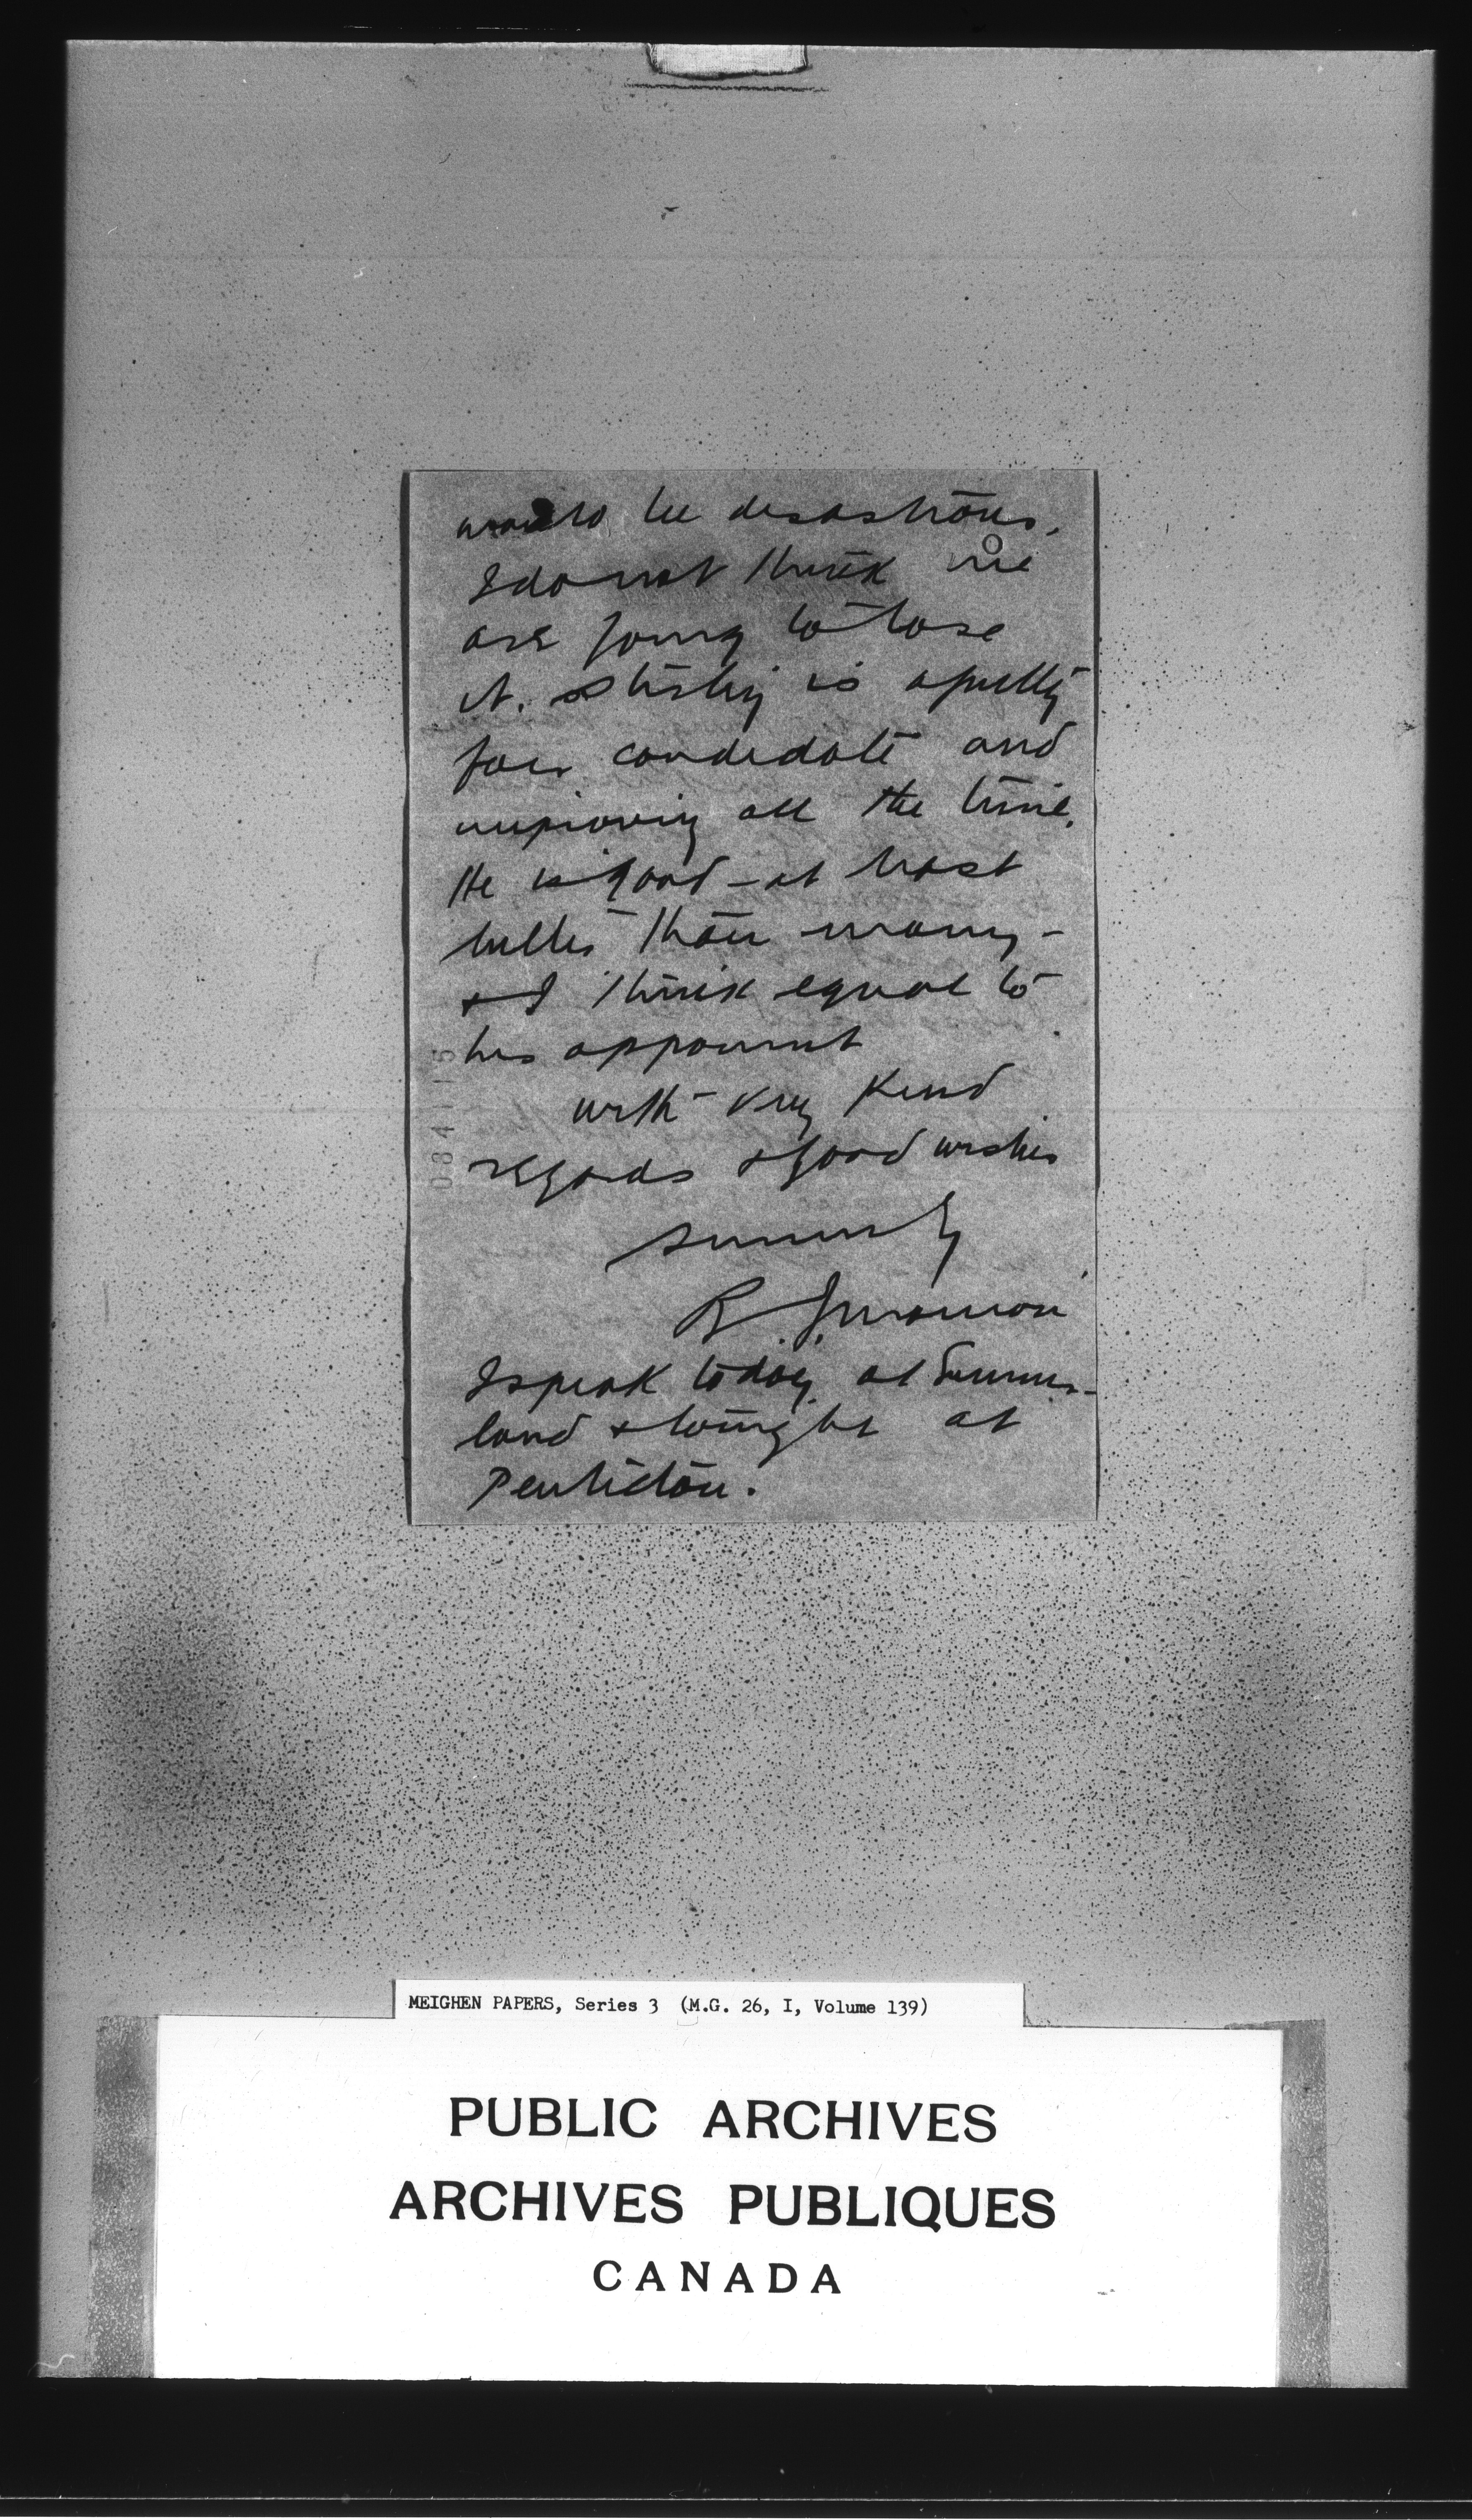 would be disastrous.
I do not think we
are going to lose
it. Stirling is a pretty
fair candidate and
improving all the time.
He is good - at least
better than many -
& I think equal to
his opponent
with very kind
regards & good wishes
sincerely
R
I speak today at Summer-
land & tonight at
Penticton.
084115
MEIGHEN PAPERS, Series 3 (M.G. 26, I, Volume 139)
PUBLIC ARCHIVES
ARCHIVES PUBLIQUES
CANADA